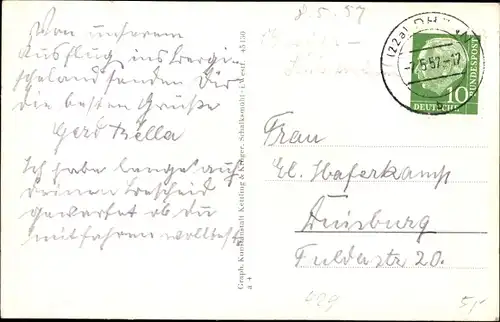 Von unserem
Ausflug ins bergi-
scheland senden Dir
die besten Grüße
Gerd Bella
Ich habe lange auf
deinen Bescheid
gewartet ob du
mitfahren wolltest
Graph. Kunstanstalt Ketteling & Krüger, Schalksmühle-Ewestf. 45130
a +
8.5.57
(22a)
-7.5.57-17
DEUTSCHE
BUNDESPOST
10
Frau
El. Haferkamp
Duisburg
Fuldastr 20.
409
5,-